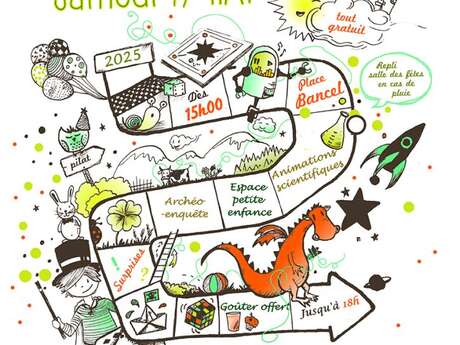 tout
gratuit
2025
Dès
15h00
Place
Bancel
Repli
salle des fêtes
en cas de
pluie
pilat
Archéo
-enquête
Espace
petite
enfance
Animations
scientifiques
!
Surprises
?
Goûter offert
Jusqu'à 18h